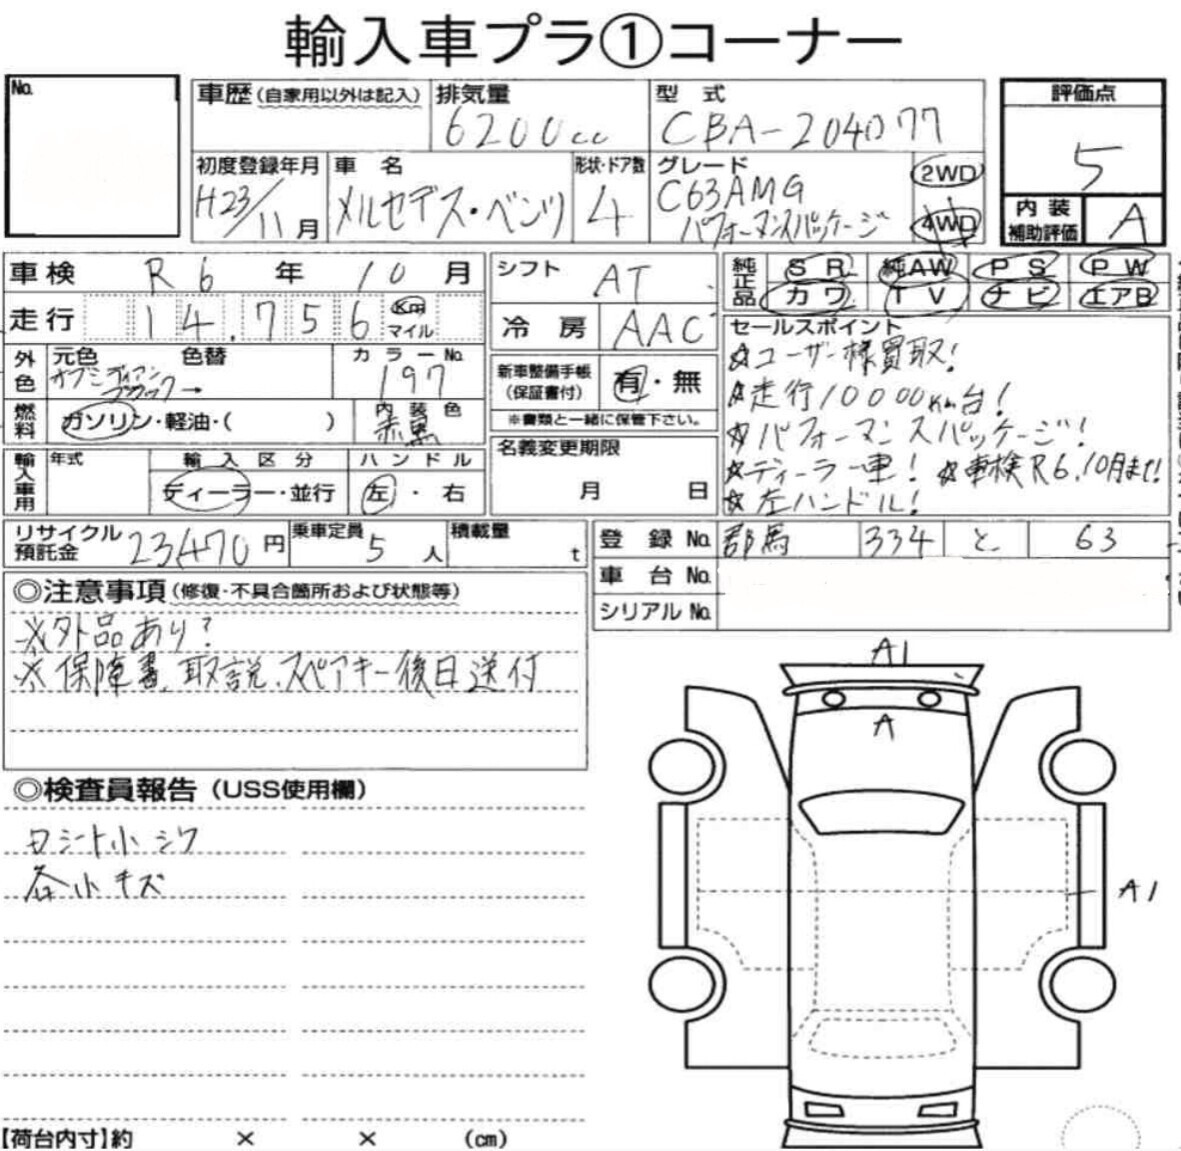 輸入車プラ①コーナー
No.
車歴(自家用以外は記入)
排気量
6200cc
型式
CBA-204077
評価点
5
初度登録年月
H23/11月
車名
メルセデス・ベンツ
形状・ドア数
4
グレード
C63AMG
パフォーマンスパッケージ
2WD
4WD
内装
補助評価
A
車検 R6年10月
シフト AT
純正品
SR 純AW PS PW
カワ TV ナビ エアB
走行 14.756 Km
マイル
冷房 AAC
セールスポイント
☆ユーザー様買取!
☆走行10000Km台!
☆パフォーマンスパッケージ!
☆ディーラー車! ☆車検R6.10月まで!
☆左ハンドル!
外色
元色 色替
オブシディアン
ブラック→
カラーNo.
197
新車整備手帳
(保証書付)
有・無
※書類と一緒に保管下さい。
燃料
ガソリン・軽油・( )
内装色
赤黒
名義変更期限
月 日
輸入車用
年式
輸入区分
ディーラー・並行
ハンドル
左・右
リサイクル
預託金
23,470円
乗車定員
5人
積載量
t
登録No. 群馬 334 と 63
車台No.
シリアルNo.
◎注意事項(修復・不具合箇所および状態等)
※外品あり?
※保障書、取説、スペアキー後日送付
A1
A
◎検査員報告(USS使用欄)
Dシート小シワ
各小キズ
A1
【荷台内寸】約 × × (cm)